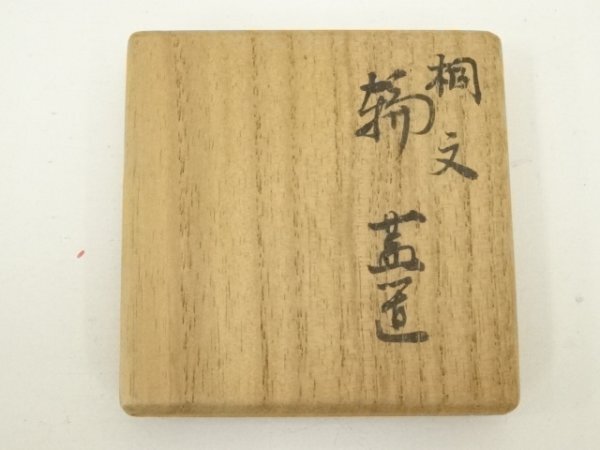 桐文
輪 蓋置